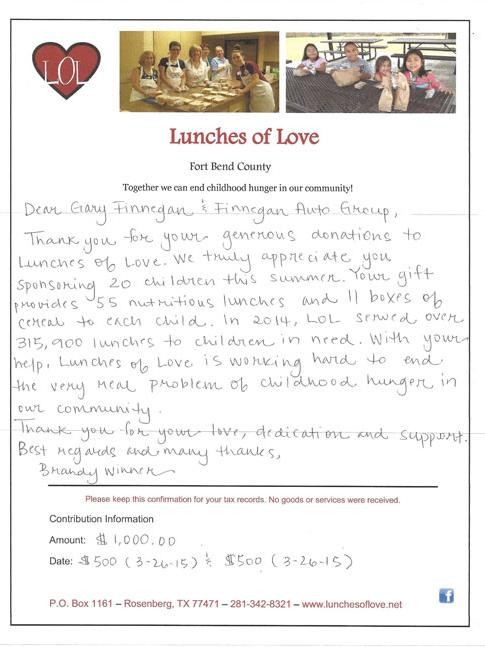 LOL
Lunches of Love
Fort Bend County
Together we can end childhood hunger in our community!
Dear Gary Finnegan & Finnegan Auto Group,
Thank you for your generous donations to
Lunches of Love. We truly appreciate you
sponsoring 20 children this summer. Your gift
provides 55 nutritious lunches and 11 boxes of
cereal to each child. In 2014, LOL served over
315,900 lunches to children in need. With your
help, Lunches of Love is working hard to end
the very real problem of childhood hunger in
our community.
Thank you for your love, dedication and support.
Best regards and many thanks,
Brandy Winner
Please keep this confirmation for your tax records. No goods or services were received.
Contribution Information
Amount: $1,000.00
Date: $500 (3-26-15) & $500 (3-26-15)
P.O. Box 1161 – Rosenberg, TX 77471 – 281-342-8321 – www.lunchesoflove.net
f